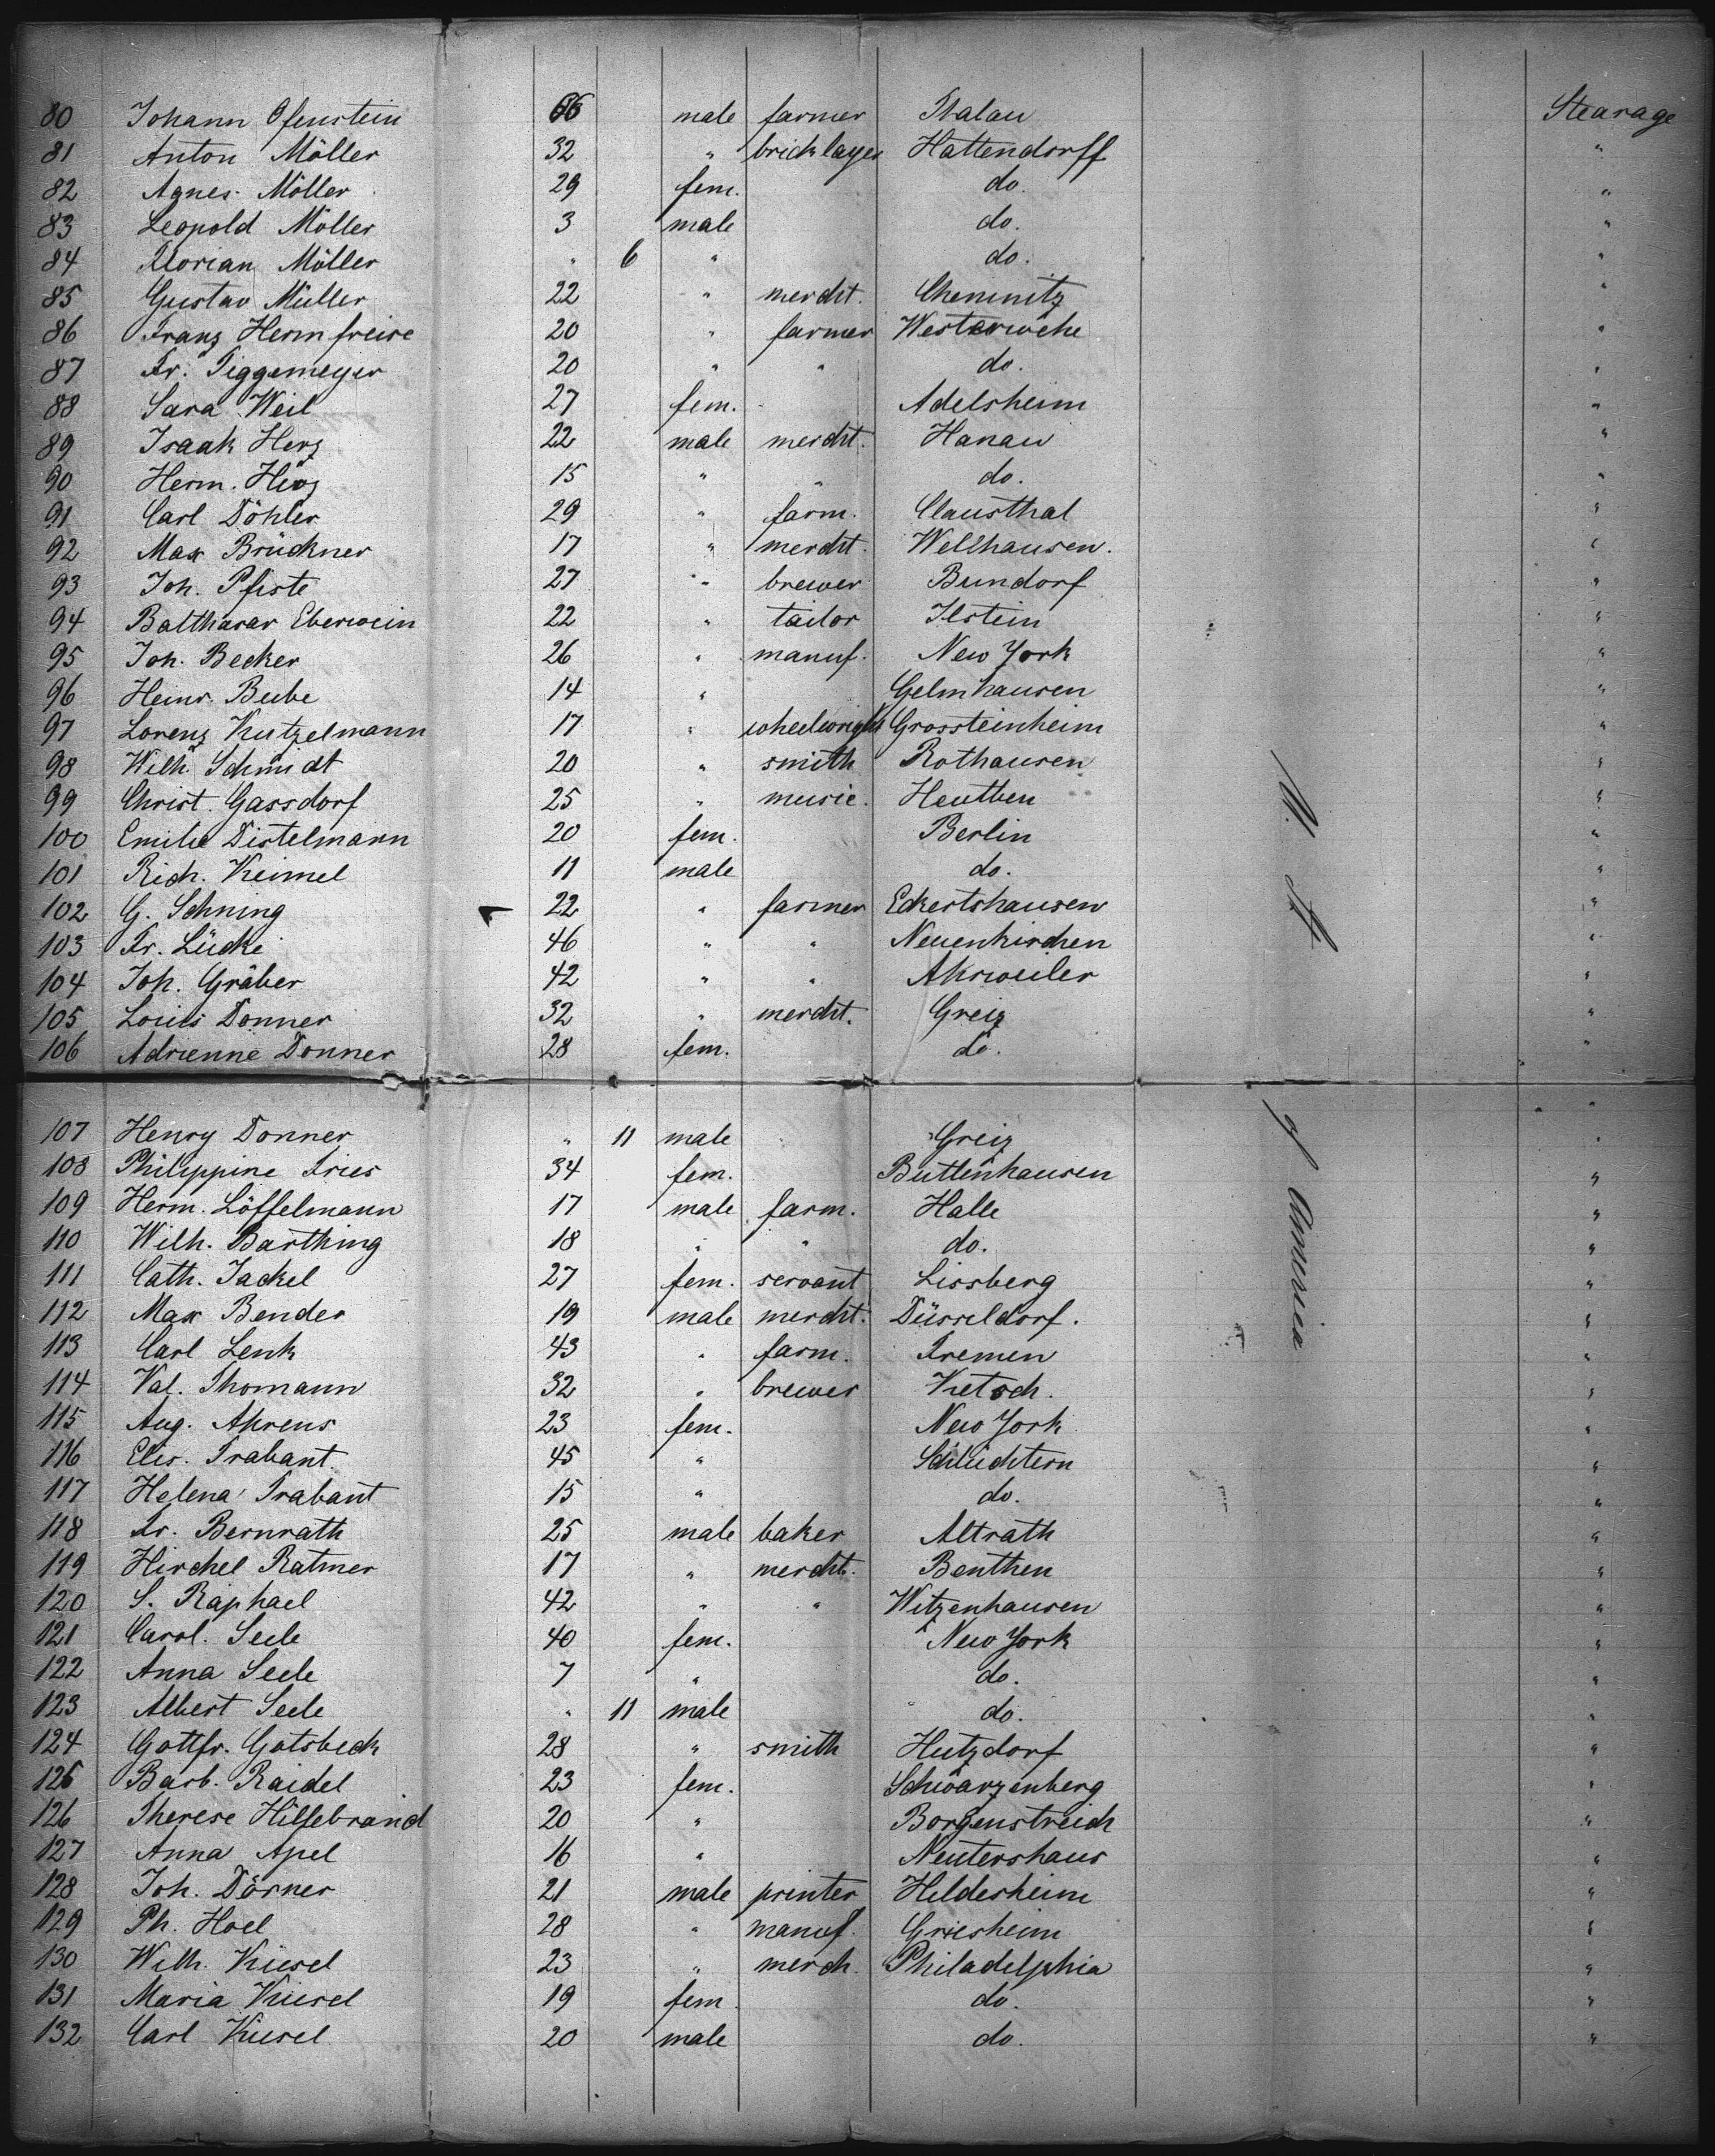 80 Johann Ofenstein 66 male farmer Stalau Stearage
81 Anton Möller 32 " bricklayer Hattendorff "
82 Agnes Möller 29 fem. do. "
83 Leopold Möller 3 male do. "
84 Florian Möller " 6 " do. "
85 Gustav Müller 22 " mercht. Chemnitz "
86 Franz Hermfreise 20 " farmer Westerwiehe "
87 Fr. Figgemeyer 20 " " do. "
88 Sara Weil 27 fem. Adelsheim "
89 Isaak Herz 22 male mercht. Hanau "
90 Herm. Herz 15 " " do. "
91 Carl Döhler 29 " farm. Clausthal "
92 Max Brückner 17 " mercht. Wellhausen. "
93 Joh. Pfiste 27 " brewer Bundorf "
94 Balthasar Eberwein 22 " tailor Ilstein "
95 Joh. Becker 26 " manuf. New York "
96 Heinr. Bube 14 " Gelmhausen "
97 Lorenz Kutzelmann 17 " wheelwright Grossteinheim "
98 Wilh. Schmidt 20 " smith Rothausen "
99 Christ. Gassdorf 25 " music. Heuthen "
100 Emilie Distelmann 20 fem. Berlin "
101 Rich. Keimel 11 male do. "
102 G. Schning 22 " farmer Eckertshausen "
103 Fr. Lücke 46 " " Neuenkirchen "
104 Joh. Gräber 42 " " Ahrweiler "
105 Louis Donner 32 " mercht. Greiz "
106 Adrienne Donner 28 fem. do. "
107 Henry Donner " 11 male Greiz "
108 Philippine Fries 34 fem. Buttenhausen "
109 Herm. Löffelmann 17 male farm. Halle "
110 Wilh. Barthing 18 " " do. "
111 Cath. Jackel 27 fem. servant Lissberg "
112 Max Bender 19 male mercht. Düsseldorf. "
113 Carl Lenk 43 " farm. Fremen "
114 Val. Thomann 32 " brewer Ketsch. "
115 Aug. Ahrens 23 fem. New York "
116 Elis. Trabant 45 " Schlüchtern "
117 Helena Trabant 15 " do. "
118 Fr. Bernrath 25 male baker Altrath "
119 Hirchel Ratmer 17 " mercht. Benthen "
120 S. Raphael 42 " " Witzenhausen "
121 Carol. Seele 40 fem. New York "
122 Anna Seele 7 " do. "
123 Albert Seele " 11 male do. "
124 Gottfr. Gotsbeck 28 " smith Hutzdorf "
125 Barb. Raidel 23 fem. Schwarzenberg "
126 Therese Hillebrand 20 " Borgenstreich "
127 Anna Apel 16 " Nentershaus "
128 Joh. Dörner 21 male printer Hildesheim "
129 Ph. Hoel 28 " manuf. Griesheim "
130 Wilh. Kiesel 23 " merch. Philadelphia "
131 Maria Kiesel 19 fem do. "
132 Carl Kiesel 20 male do. "
U. St. of America